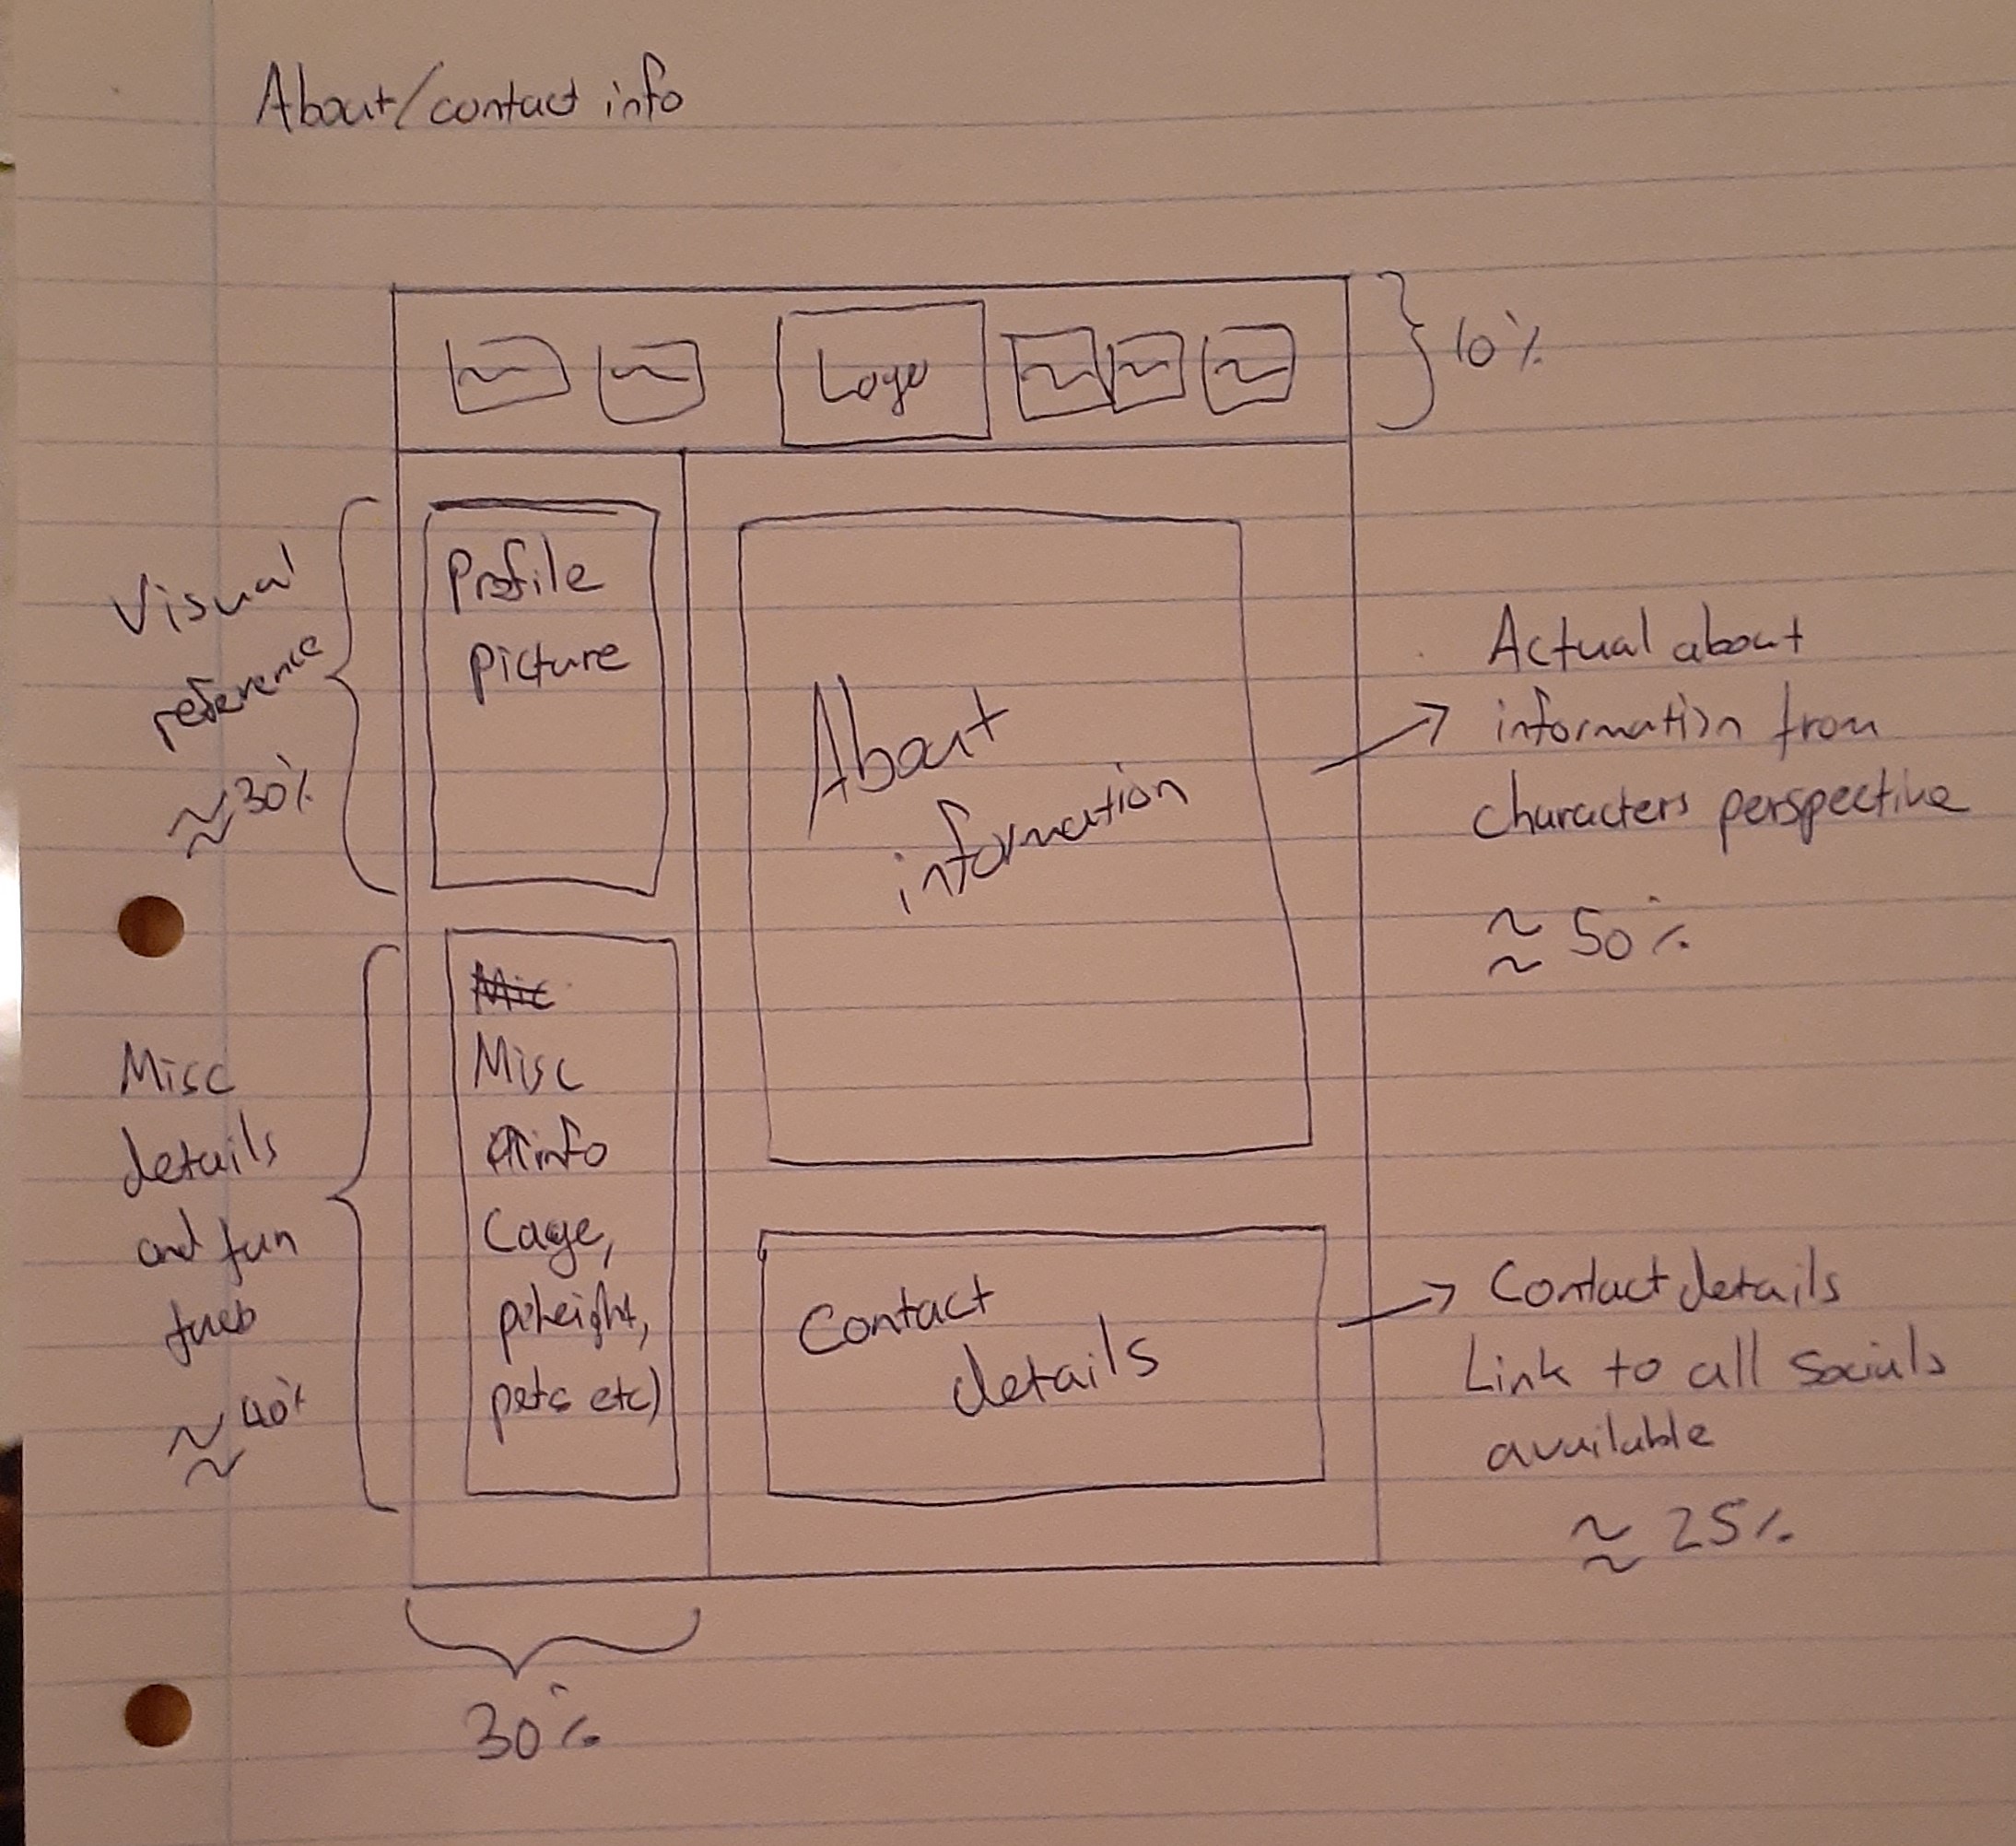 About/contact info
Logo
10%
Visual
reference
≈30%
Profile
picture
About
information
Actual about
information from
characters perspective
≈ 50%
Misc
details
and fun
≈40%
Mic
Misc
info
(age,
height,
pets etc)
Contact
details
Contact details
Link to all socials
available
≈ 25%
30%